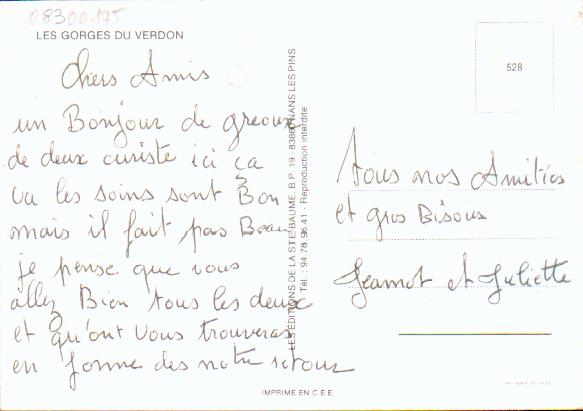 08300-175
LES GORGES DU VERDON
Chers Amis
un Bonjour de greoux
de deux curiste ici ça
va les soins sont Bon
mais il fait pas Beau
je pense que vous
allez Bien tous les deux
et qu'ont vous trouveras
en forme des notre retour
LES EDITIONS DE LA STE BAUME B.P. 19 - 83860 NANS LES PINS
Tél. : 94.78.96.41 - Reproduction interdite
528
Tous nos Amitiés
et gros Bisous
Jeannot et Juliette
IMPRIME EN C.E.E.